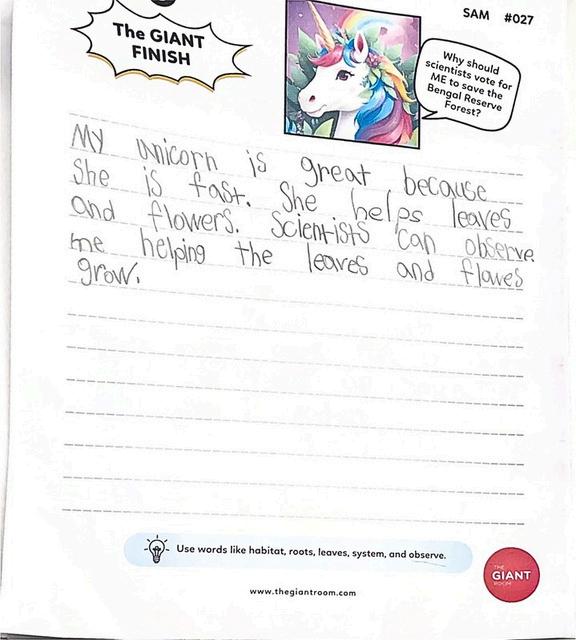 SAM #027
The GIANT
FINISH
Why should
scientists vote for
ME to save the
Bengal Reserve
Forest?
My unicorn is great because
She is fast. She helps leaves
and flowers. Scientists can observe
me helping the leaves and flowes
grow.
Use words like habitat, roots, leaves, system, and observe.
THE
GIANT
ROOM
www.thegiantroom.com